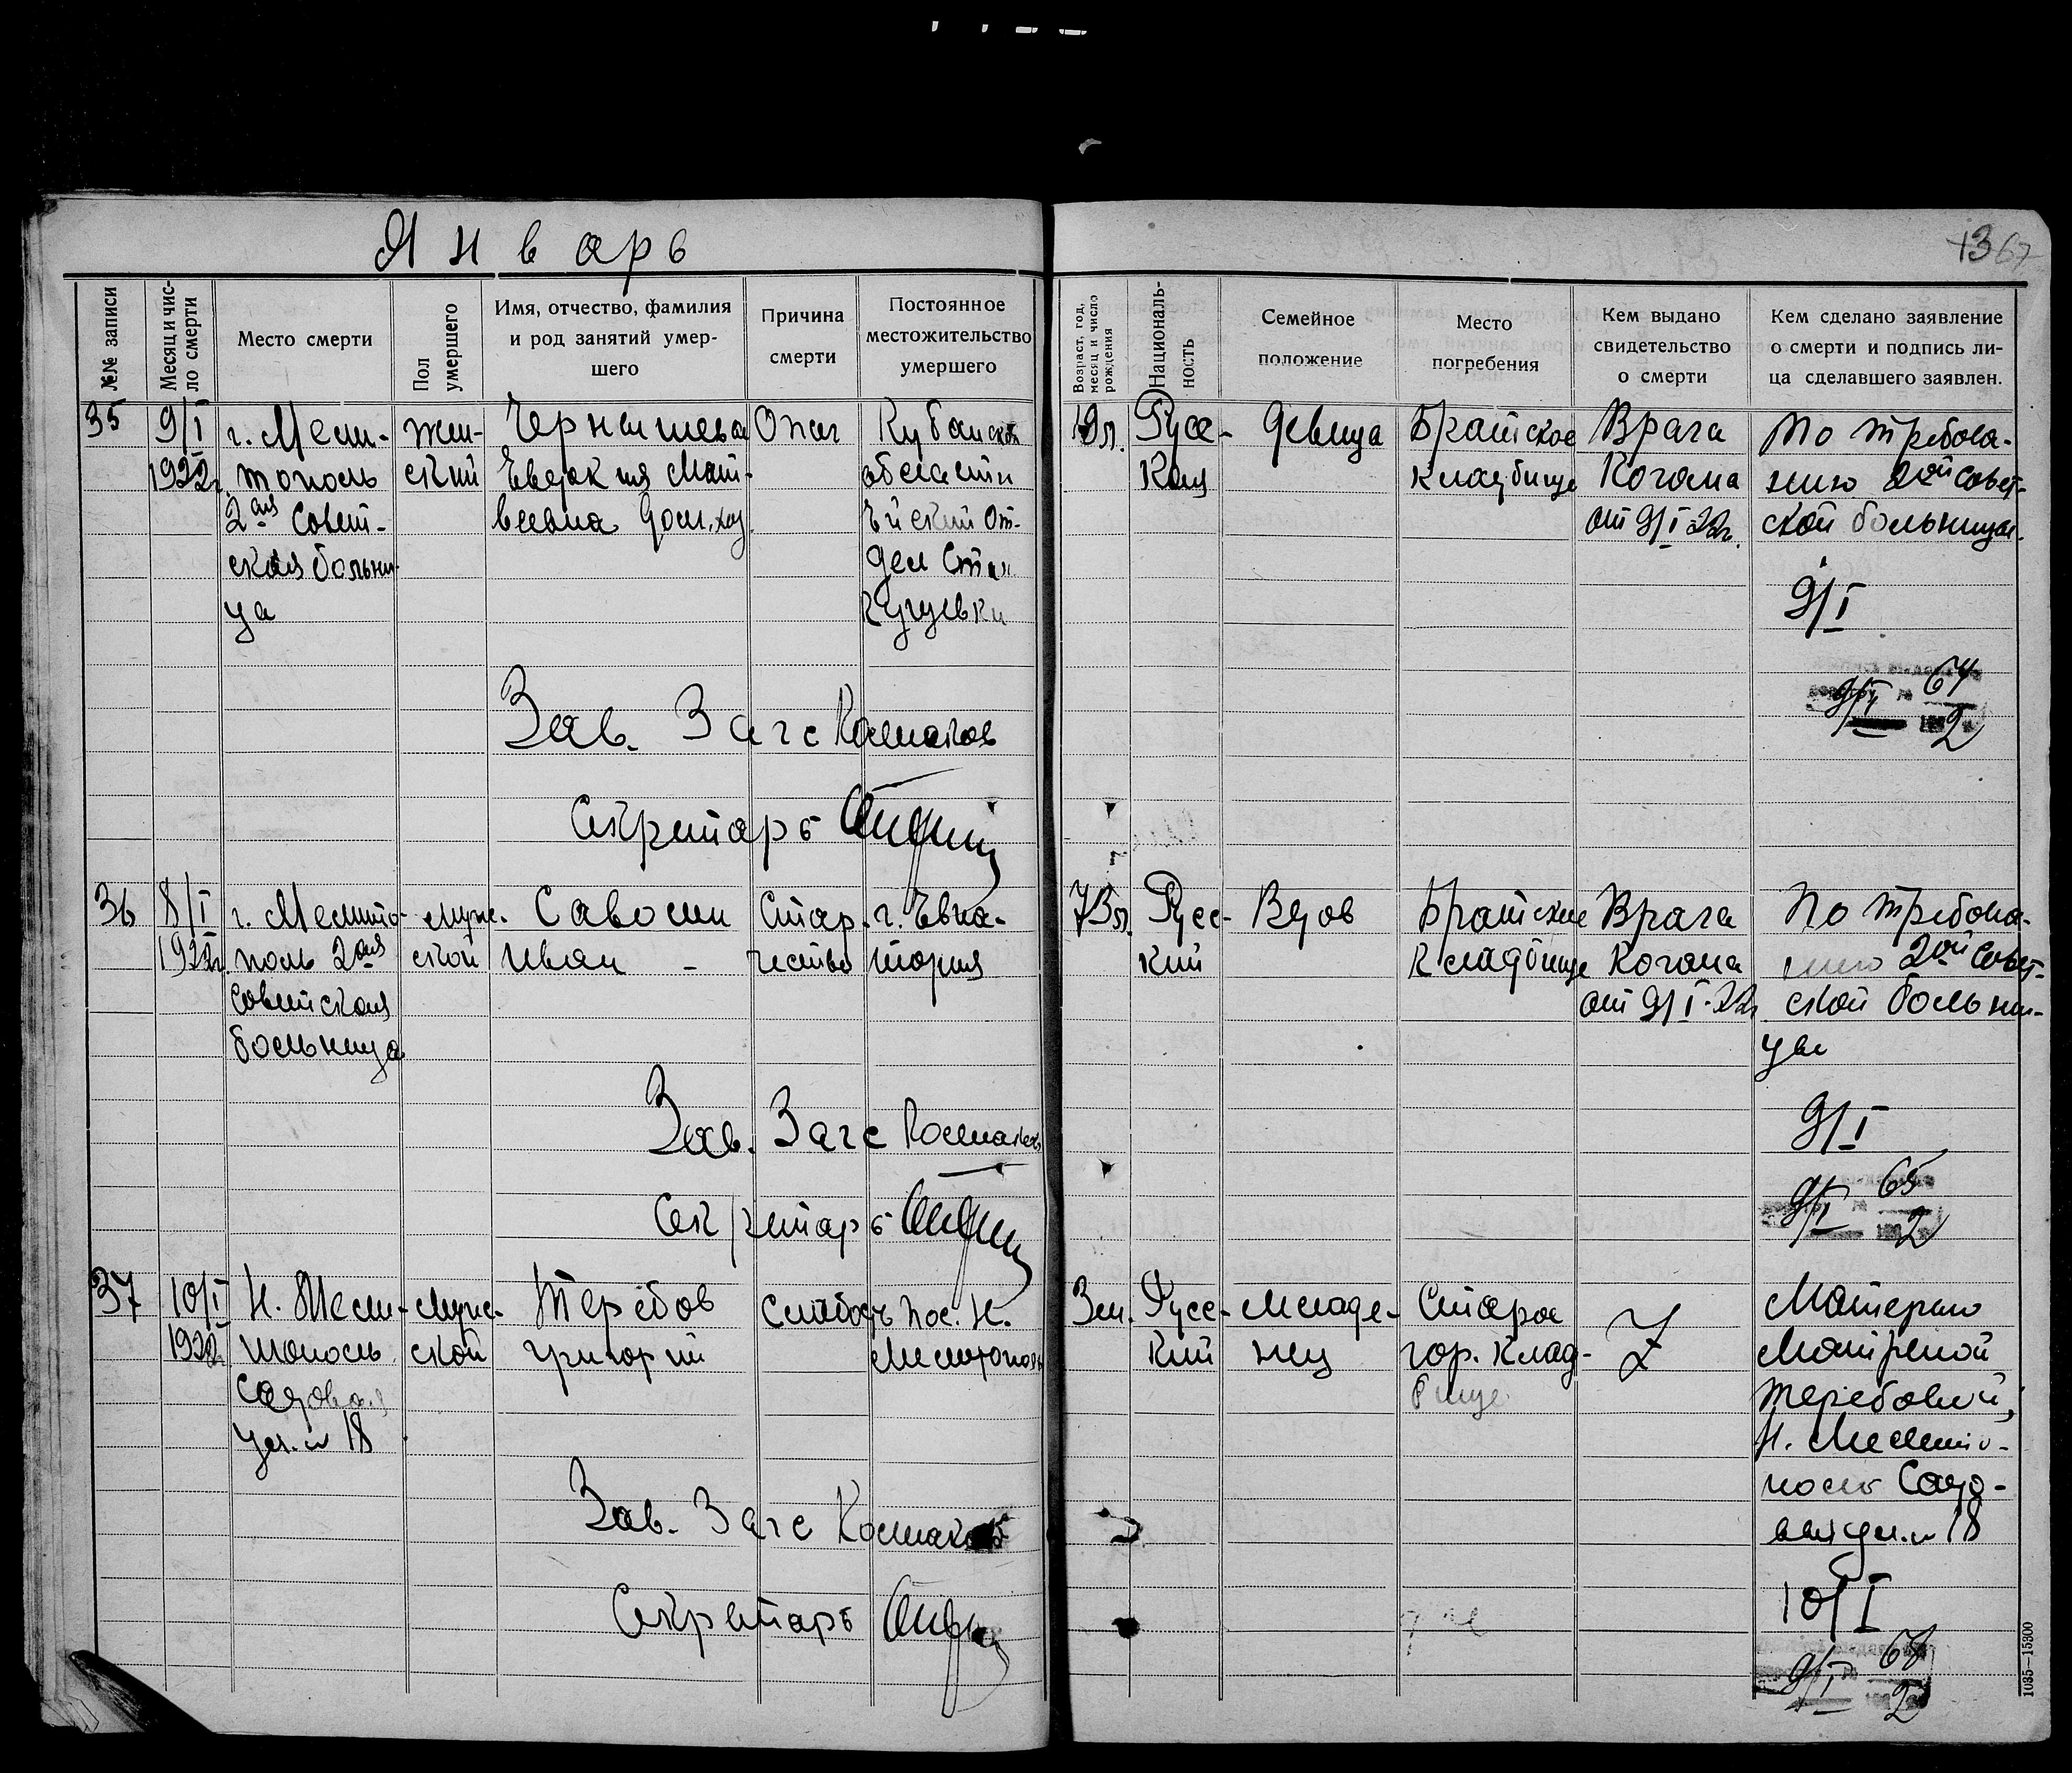 Январь
1367
№№ записи
Месяц и чис-
ло смерти
Место смерти
Пол
умершего
Имя, отчество, фамилия
и род занятий умер-
шего
Причина
смерти
Постоянное
местожительство
умершего
Возраст, год,
месяц и число
рождения
Националь-
ность
Семейное
положение
Место
погребения
Кем выдано
свидетельство
о смерти
Кем сделано заявление
о смерти и подпись ли-
ца сделавшего заявлен.
35
9/I
1922г.
г. Мели-
тополь
2ая Совет-
ская больни-
ца
жен-
ский
Чернышева
Евдокия Мат-
веевна дом. хоз.
Кубанская
области
Ейский От-
дел Стан.
19л.
Русс-
кая
девица
Братское
кладбище
Врача
Когана
от 9/I 22г.
По требова-
нию 2ой Совет-
ской больницы
9/I
9/I 64
2
Зав. Загс
Секретарь
36
8/I
1922г.
г. Мелито-
поль 2ая
Советская
больница
муж-
ской
Савоши
Иван -
Стар-
чество
г. Евпа-
тория
73л.
Русс-
кий
Вдов
Братское
кладбище
Врача
Когана
от 9/I-22г.
По требова-
нию 2ой Совет-
ской больни-
цы
9/I
9/I 65
2
Зав. Загс
Секретарь
37
10/I
1922г.
Н. Мели-
тополь
Садовая
ул. № 18
муж-
ской
Теребов
Григорий
Слабость
пос. Н.
Мелитополь
3м.
Русс-
кий
младе-
нец
Старое
гор. клад-
бище
Z
Матерью
Матреной
Теребовой,
Н. Мелито-
поль Садо-
вая ул. № 18
10/I
9/I 68
2
Зав. Загс
Секретарь
1035—15300